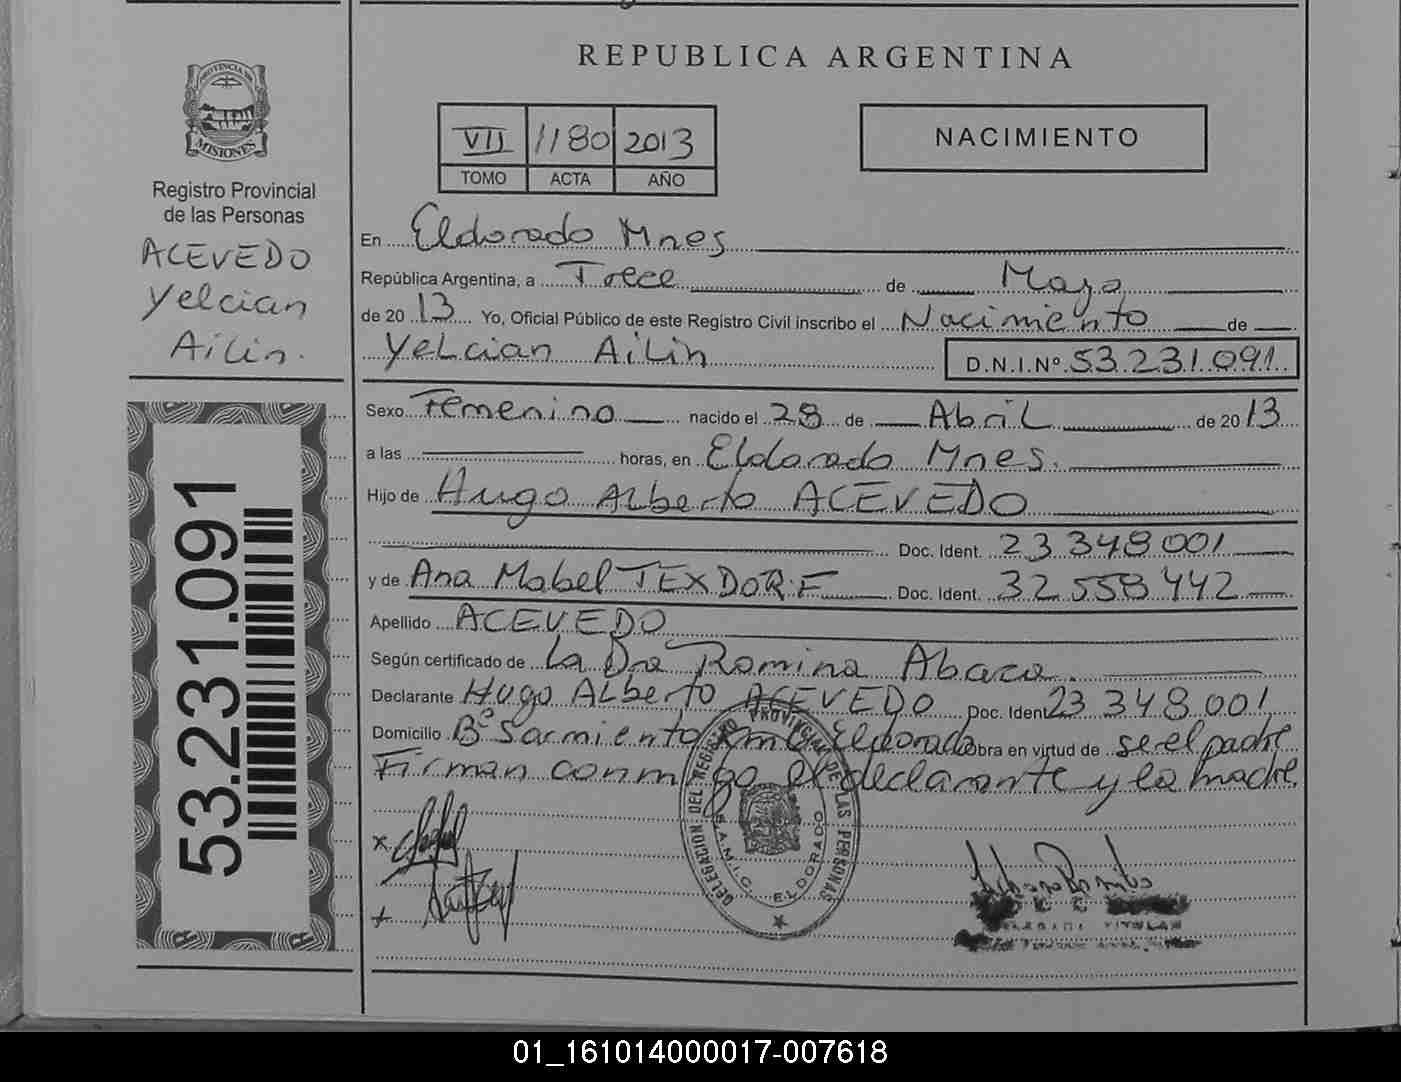 REPUBLICA ARGENTINA
PROVINCIA DE
MISIONES
Registro Provincial
de las Personas
ACEVEDO
Yelcian
Ailin.
53.231.091
VII 1180 2013
TOMO ACTA AÑO
NACIMIENTO
En Eldorado Mnes
República Argentina, a Trece de Mayo
de 20 13 Yo, Oficial Público de este Registro Civil inscribo el Nacimiento de
Yelcian Ailin D.N.I.Nº 53.231.091
Sexo Femenino nacido el 28 de Abril de 20 13
a las horas, en Eldorado Mnes.
Hijo de Hugo Alberto ACEVEDO
Doc. Ident. 23 348 001
y de Ana Mabel TEXDORF Doc. Ident. 32 558 442
Apellido ACEVEDO
Según certificado de La Dra Romina Abaca.
Declarante Hugo Alberto ACEVEDO Doc. Ident 23 348 001
Domicilio Bº Sarmiento Eldorado obra en virtud de se el padre
Firman conmigo el declarante y la madre.
DELEGACION DEL REGISTRO PROVINCIAL DE LAS PERSONAS
S.A.M.I.C. ELDORADO
01_161014000017-007618